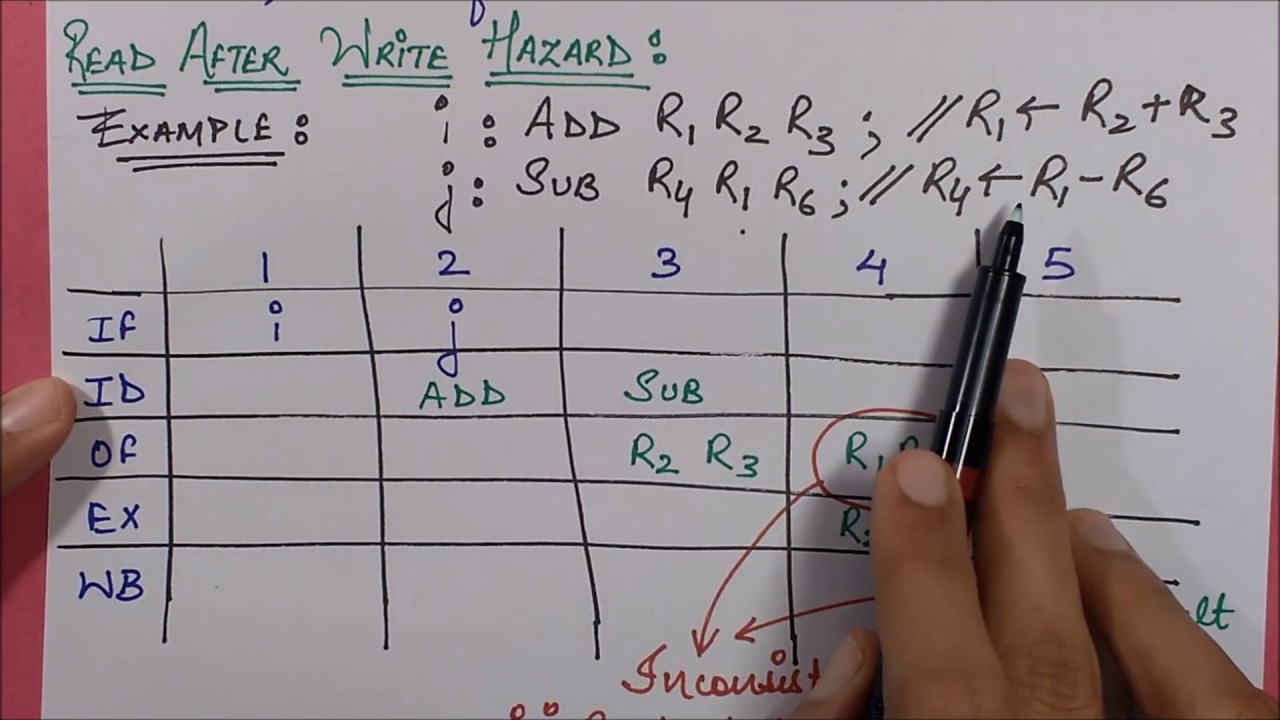 READ AFTER WRITE HAZARD:
EXAMPLE: i: ADD R1 R2 R3; // R1 ← R2 + R3
j: SUB R4 R1 R6; // R4 ← R1 - R6
1 2 3 4 5
IF i j
ID ADD SUB
OF R2 R3 R1
EX
WB